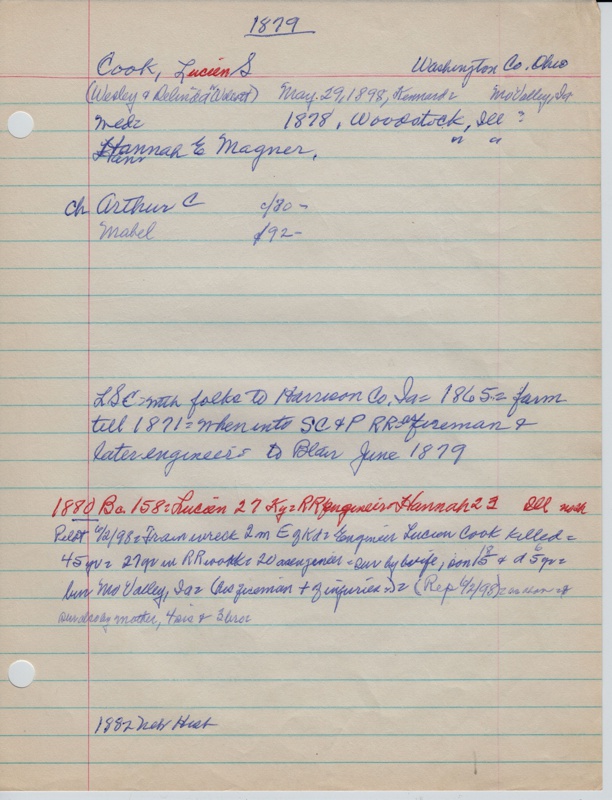 1879
Cook, Lucien S Washington Co. Ohio
(Wesley & Delinda May 29, 1898, Kennard= Mo Valley, Ia
med= 1878, Woodstock, Ill ?
Hannah E Magner. " "
ch Arthur C c/80 -
Mabel c/92 -
LSC = with folks to Harrison Co. Ia = 1865 = farm
till 1871 = when into SC & P RR = fireman &
later engineer = to Blair June 1879
1880 Bc 158 = Lucien 27 Ky = RR engineer = Hannah 23 Ill
Pilot 6/2/98 = Train wreck 2m E of Kd = Engineer Lucien Cook killed =
45 yr = 27 yr in RR work = 20 as engineer = sur by wife, son 18 & d 5 yr =
bur Mo Valley, Ia = (his fireman + of injuries) = (Rep 6/2/98) =
sur by mother, 4 sis & 3 bros
1882 Neb Hist